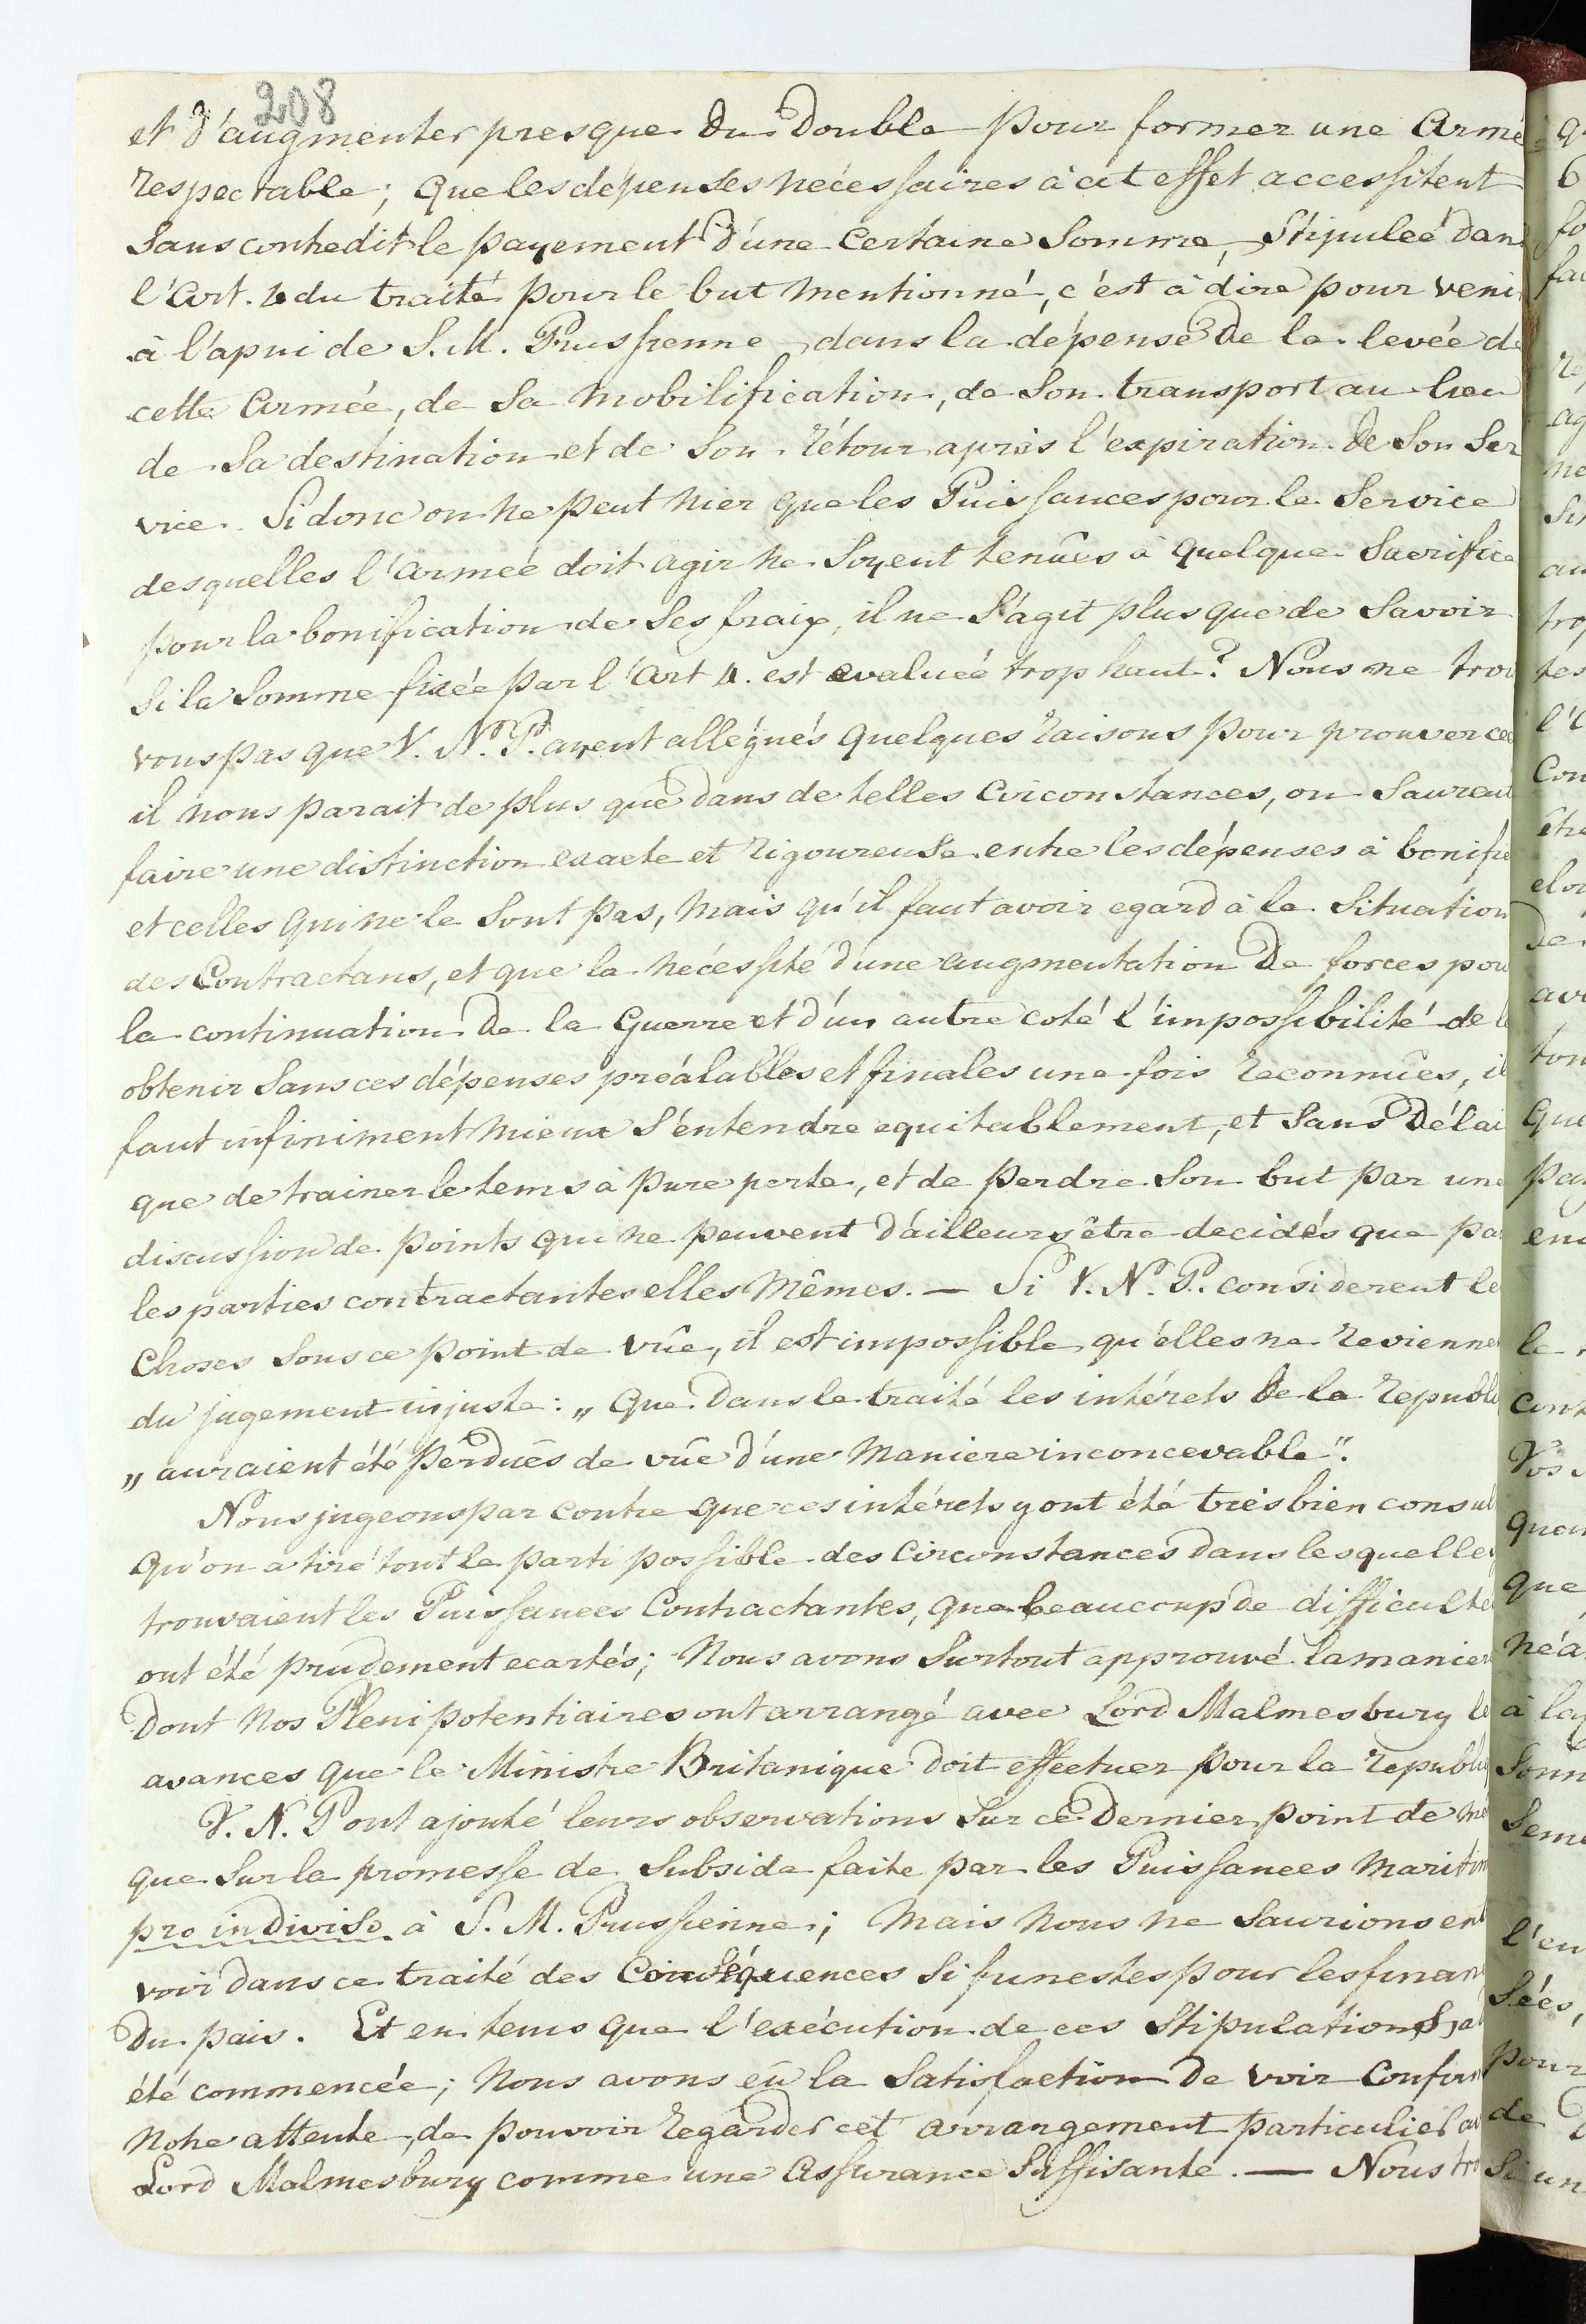 208
et d'augmenter presque du double pour former une Armé
respectable; que les dépenses nécessaires à cet effet accessitent
sans contredit le payement d'une certaine Somme, Stipuleé dans
l'Art. 4 du traité pour le but mentionné, c'est à dire pour veni
à l'apui de S. M. Prussienne dans la dépense de la levée d
cette Armée, de sa mobilification, de son transport au lieu
de sa destination et de son rétour après l'expiration de son Ser
vice. Si donc on ne peut nier que les Puissances pour le Service
desquelles l'armeé doit agir ne soyent tenûes à quelque Sacrifice
pour la bonification de ses fraix, il ne s'agit plus que de savoir
si la Somme fixée par l'Art 4. est evalueé trop haut? Nous ne trou
vons pas que V. N. P. ayent allégués quelques raisons pour prouver ce
il nous parait de plus que dans de telles circonstances, on Sauroit
faire une distinction exacte et rigoureuse entre les dépenses à bonifie
et celles qui ne le sont pas, mais qu'il faut avoir egard à la Situation
des Contractans, et que la nécéssité d'une augmentation de forces pou
la continuation de la Guerre et d'un autre coté l'impossibilité de l
obtenir sans ces dépenses préálables et finales une fois reconnûes, il
faut infiniment mieux S'entendre equitablement, et sans délai
que de trainer le tems à pure perte, et de perdre son but par une
discussion de points qui ne peuvent d'ailleurs être decidés que pa
les parties contractantes elles Mêmes. — Si V. N. P. considerent le
Choses sous ce point de vûe, il est impossible qu'elles ne revienne
du jugement injuste: „ que dans le traité les intérets de la republi
„ auraient été perdûes de vûe d'une maniere inconcevable".
Nous jugeons par contre que ces intérets y ont été tres bien consul
qu'on a tiré tout le parti possible des circonstances dans lesquelle
trouvaient les Puissances Contractantes, que beaucoup de difficulte
ont été prudement ecartés; Nous avons surtout approuvé la manier
dont nos Plenipotentiaires ont arrangé avec Lord Malmesbury le
avances que le Ministre Britanique doit effectuer pour la republiq
V. N. P ont ajouté leurs observations sur ce dernier point de mê
que sur la promesse de Subside faite par les Puissances maritim
pro indiviso à S. M. Prussienne; mais nous ne saurions ent
voir dans ce traité des Conséquences si funestes pour les finan
du pais. Et en tems que l'exécution de ces Stipulations, a
été commencée; nous avons eû la Satisfaction de voir Confirm
notre attente, de pouvoir regarder cet arrangement particulier av
Lord Malmesbury comme une Assurance Suffisante. — Nous tro